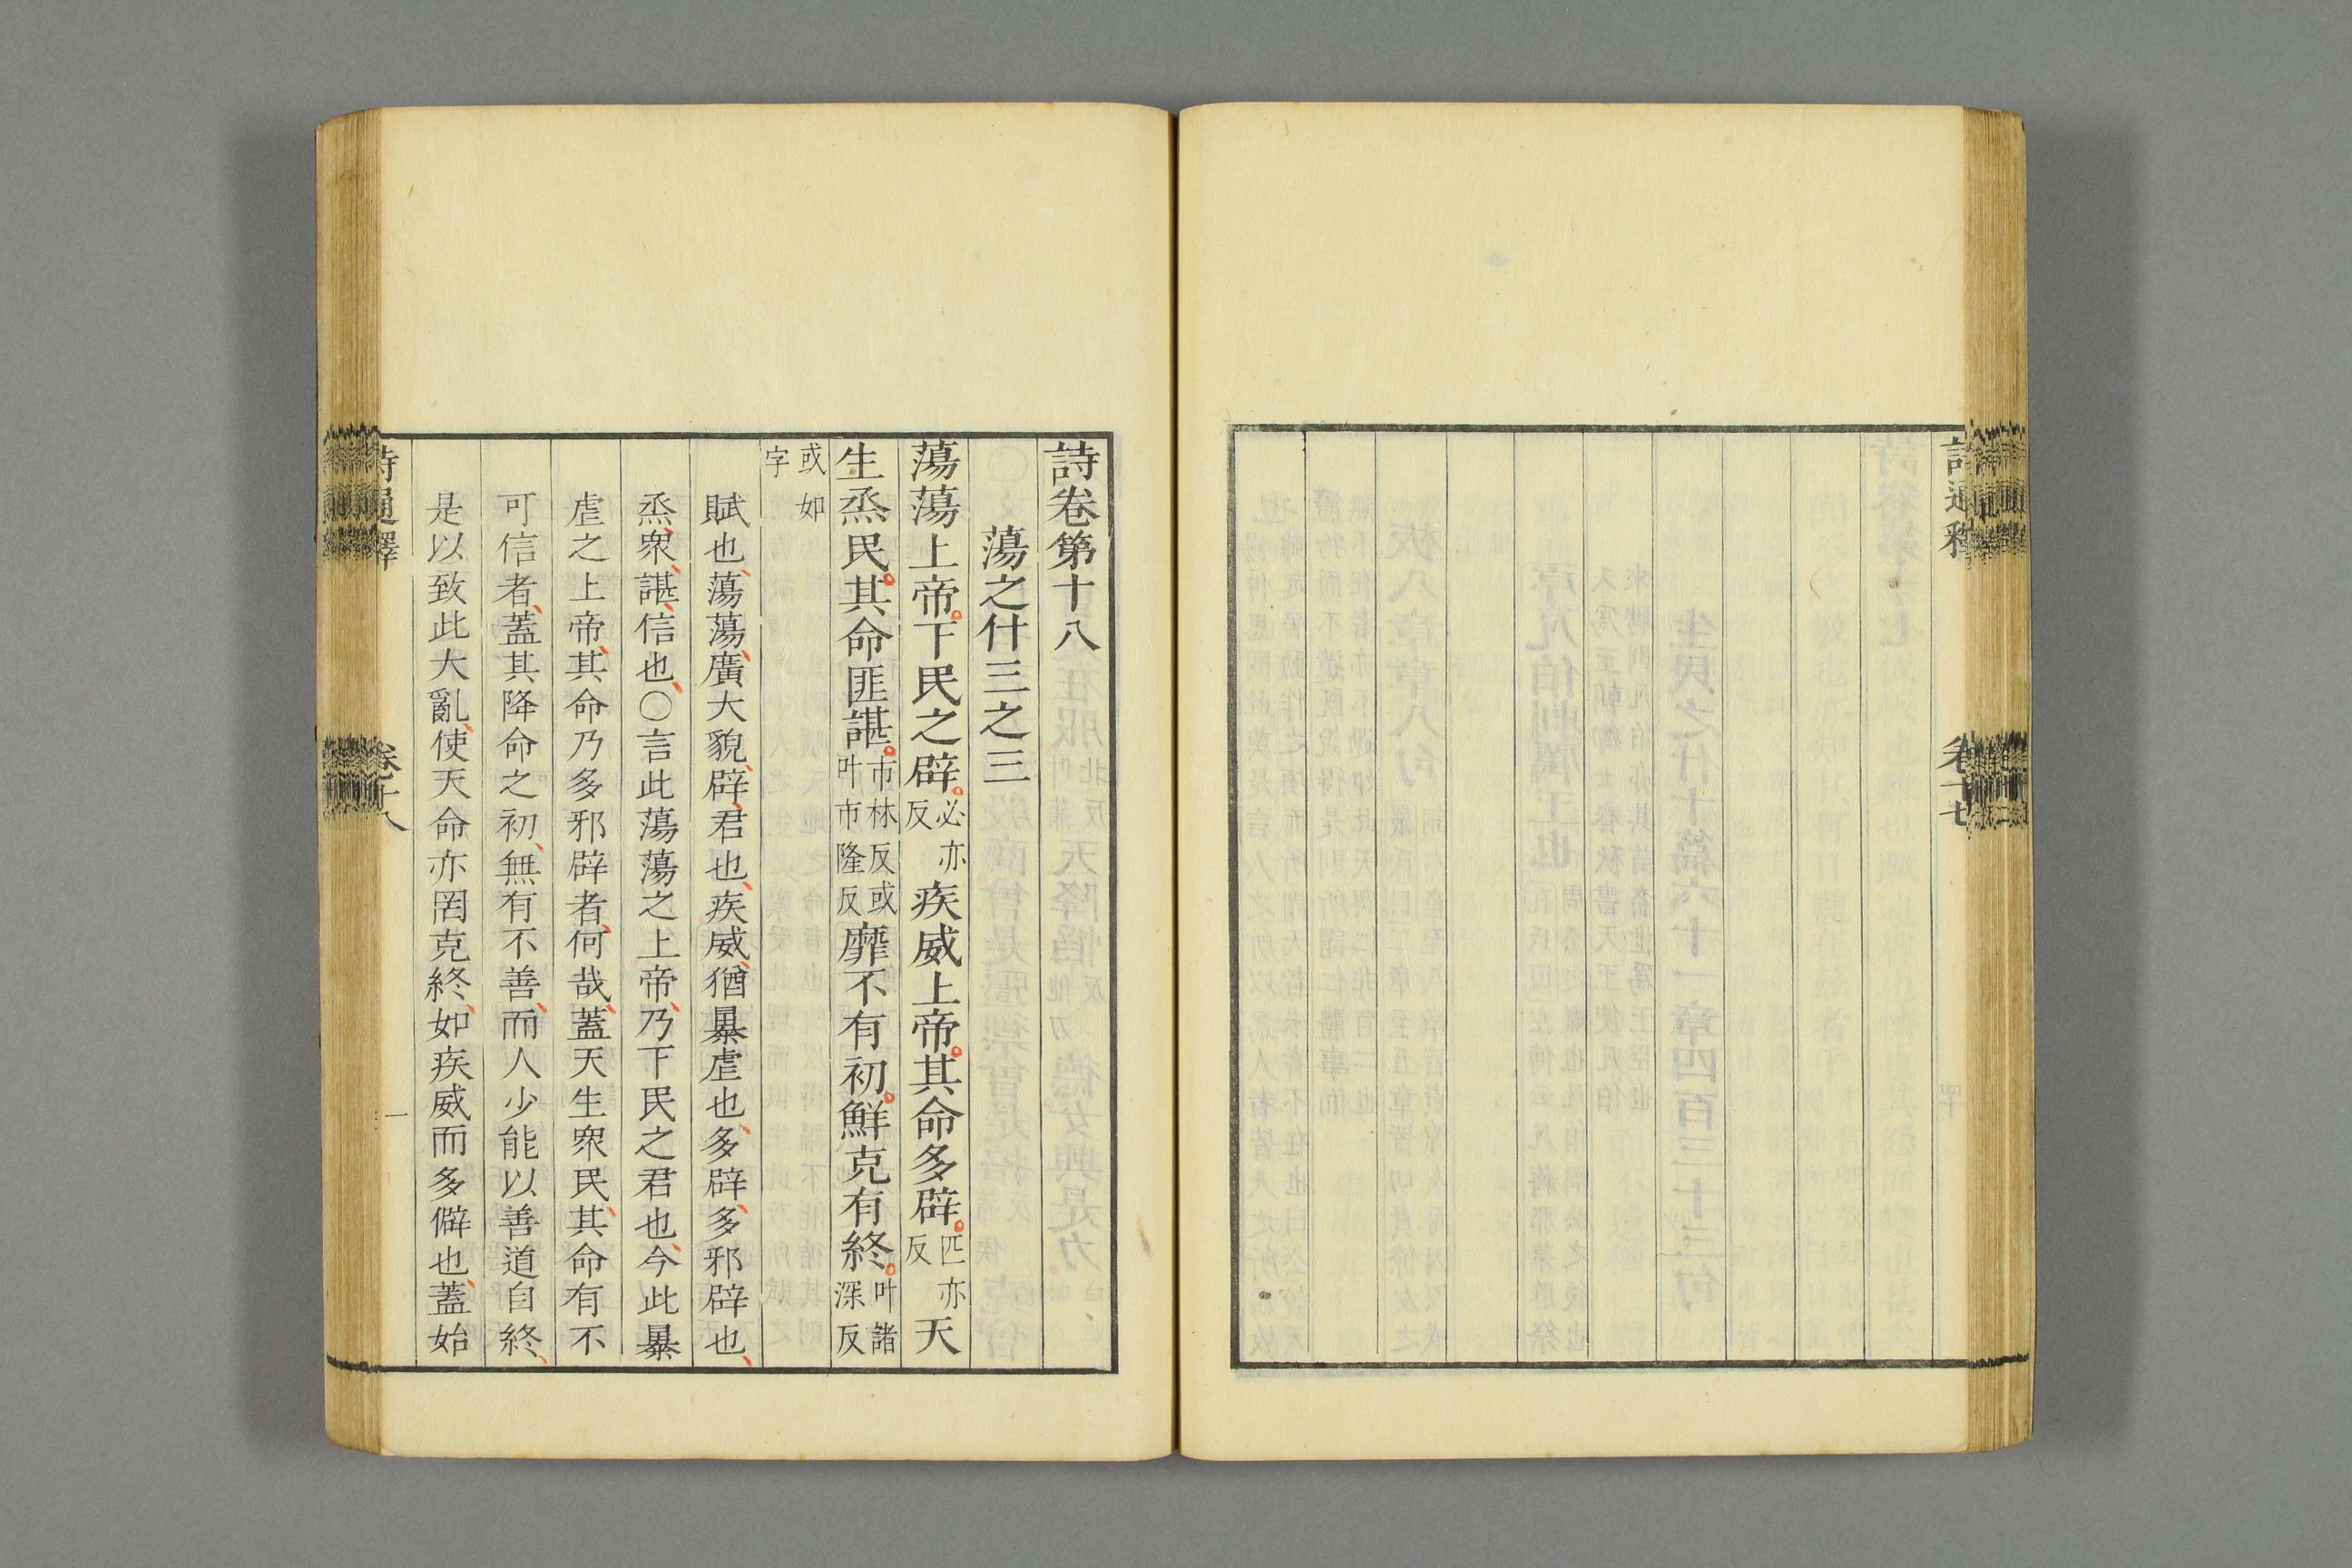 詩卷第十八
蕩之什三之三
蕩蕩上帝下民之辟必亦反疾威上帝其命多辟匹亦反天
生烝民其命匪諶市林反或叶市隆反靡不有初鮮克有終叶諸深反
或如字
賦也蕩蕩廣大貌辟君也疾威猶暴虐也多辟多邪辟也
烝衆諶信也○言此蕩蕩之上帝乃下民之君也今此暴
虐之上帝其命乃多邪辟者何哉蓋天生衆民其命有不
可信者蓋其降命之初無有不善而人少能以善道自終
是以致此大亂使天命亦罔克終如疾威而多僻也蓋始
詩通釋 卷十八 一
詩通釋 卷十七